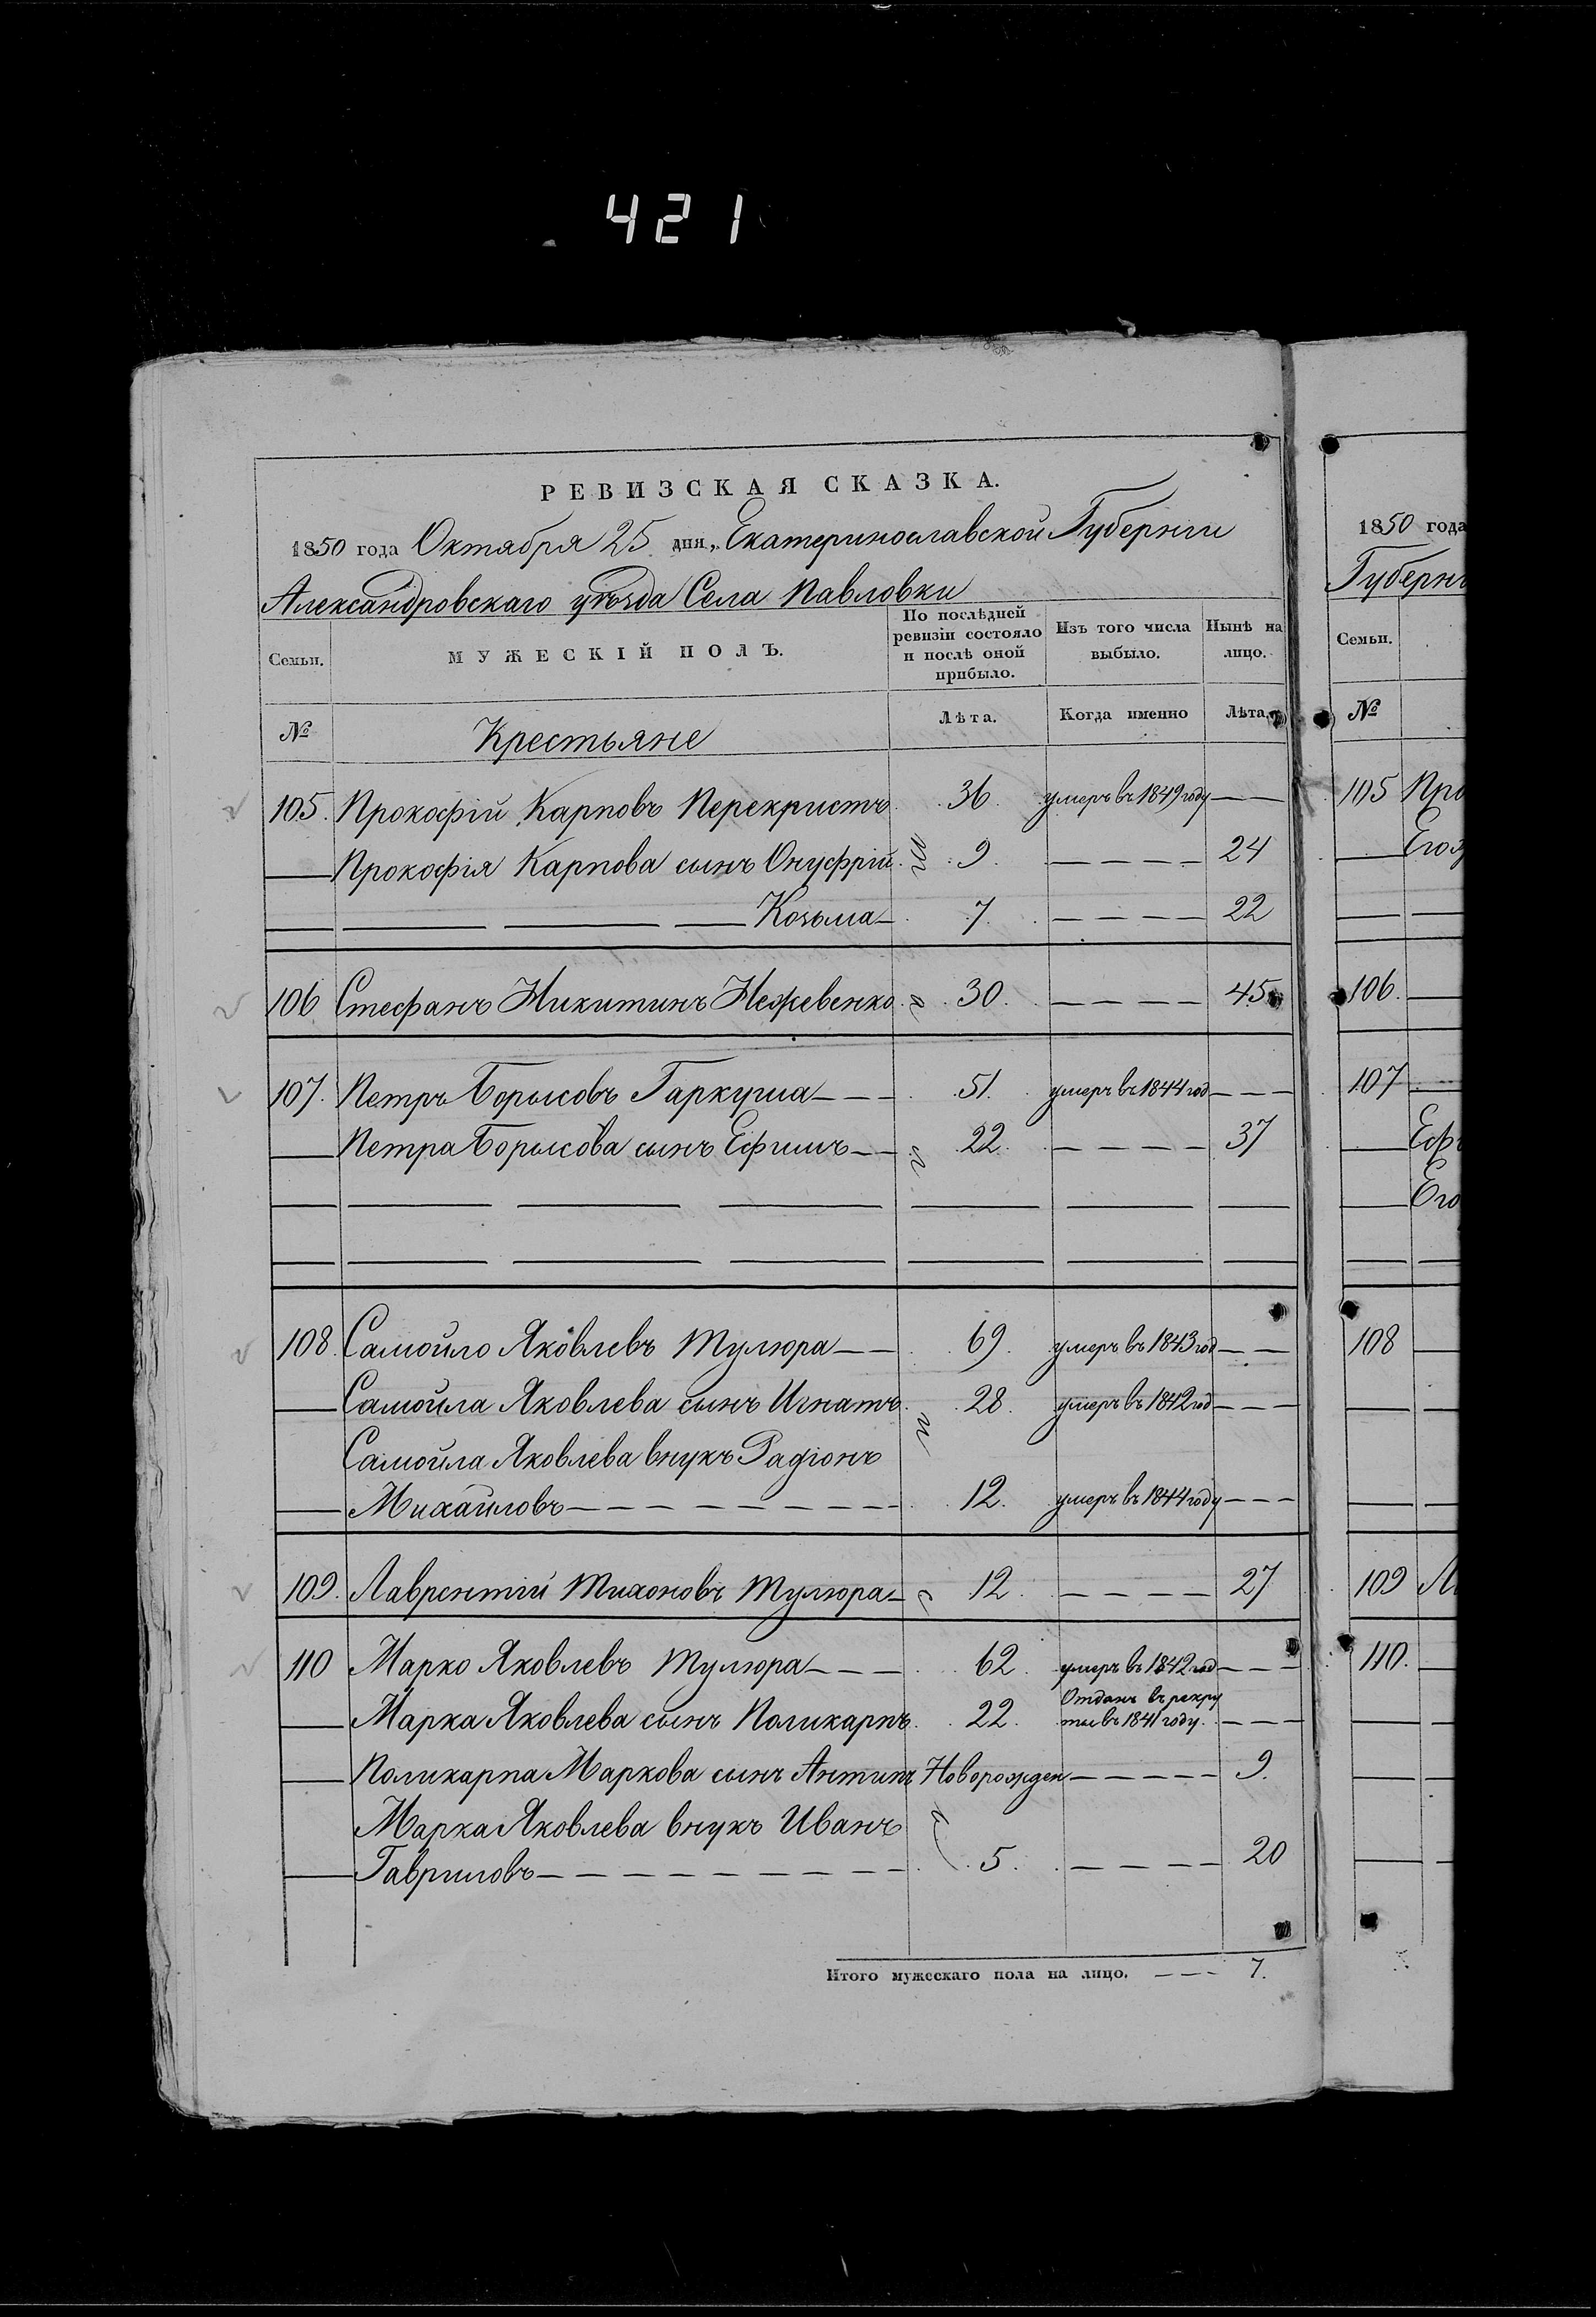 421
РЕВИЗСКАЯ СКАЗКА.
1850 года Октября 25 дня, Екатеринославской Губерніи
Александровскаго уѣзда Села Павловки
Семьи. МУЖЕСКІЙ ПОЛЪ. По послѣдней ревизіи состояло и послѣ оной прибыло. Изъ того числа выбыло. Нынѣ на лицо.
№ Крестьяне Лѣта. Когда именно Лѣта.
105. Прокофій Карповъ Перекристъ 36. умеръ въ 1849 году — —
— Прокофія Карпова сынъ Онуфрій 9. — — — — 24
— — — — Козьма — 7. — — — — 22
106 Стефанъ Никитинъ Нежевенко 30. — — — — 45
107. Петръ Борисовъ Гаркуша — — — 51. умеръ въ 1844 год — — —
— Петра Борисова сынъ Ефимъ — — 22. — — — — 37
108. Самойло Яковлевъ Тулюра — — 69. умеръ въ 1843 год — — —
— Самойла Яковлева сынъ Игнатъ 28. умеръ въ 1842 год — — —
Самойла Яковлева внукъ Радіонъ
— Михайловъ — — — — — — — — 12. умеръ въ 1844 году — — —
109. Лаврентій Тихоновъ Тулюра — 12. — — — — 27
110 Марко Яковлевъ Тулюра — — — 62. умеръ въ 1842 год — — —
— Марка Яковлева сынъ Поликарпъ 22. Отданъ въ рекру
ты въ 1841 году. — — —
— Поликарпа Маркова сынъ Антипъ Новорожден — — — — — 9.
Марка Яковлева внукъ Иванъ
— Гавриловъ — — — — — — — — 5. — — — — 20
Итого мужескаго пола на лицо. — — — 7.
1850 года
Губерн
Семьи.
№
105 Про
Его
106.
107
Еф
Его
108
109 Л
110.